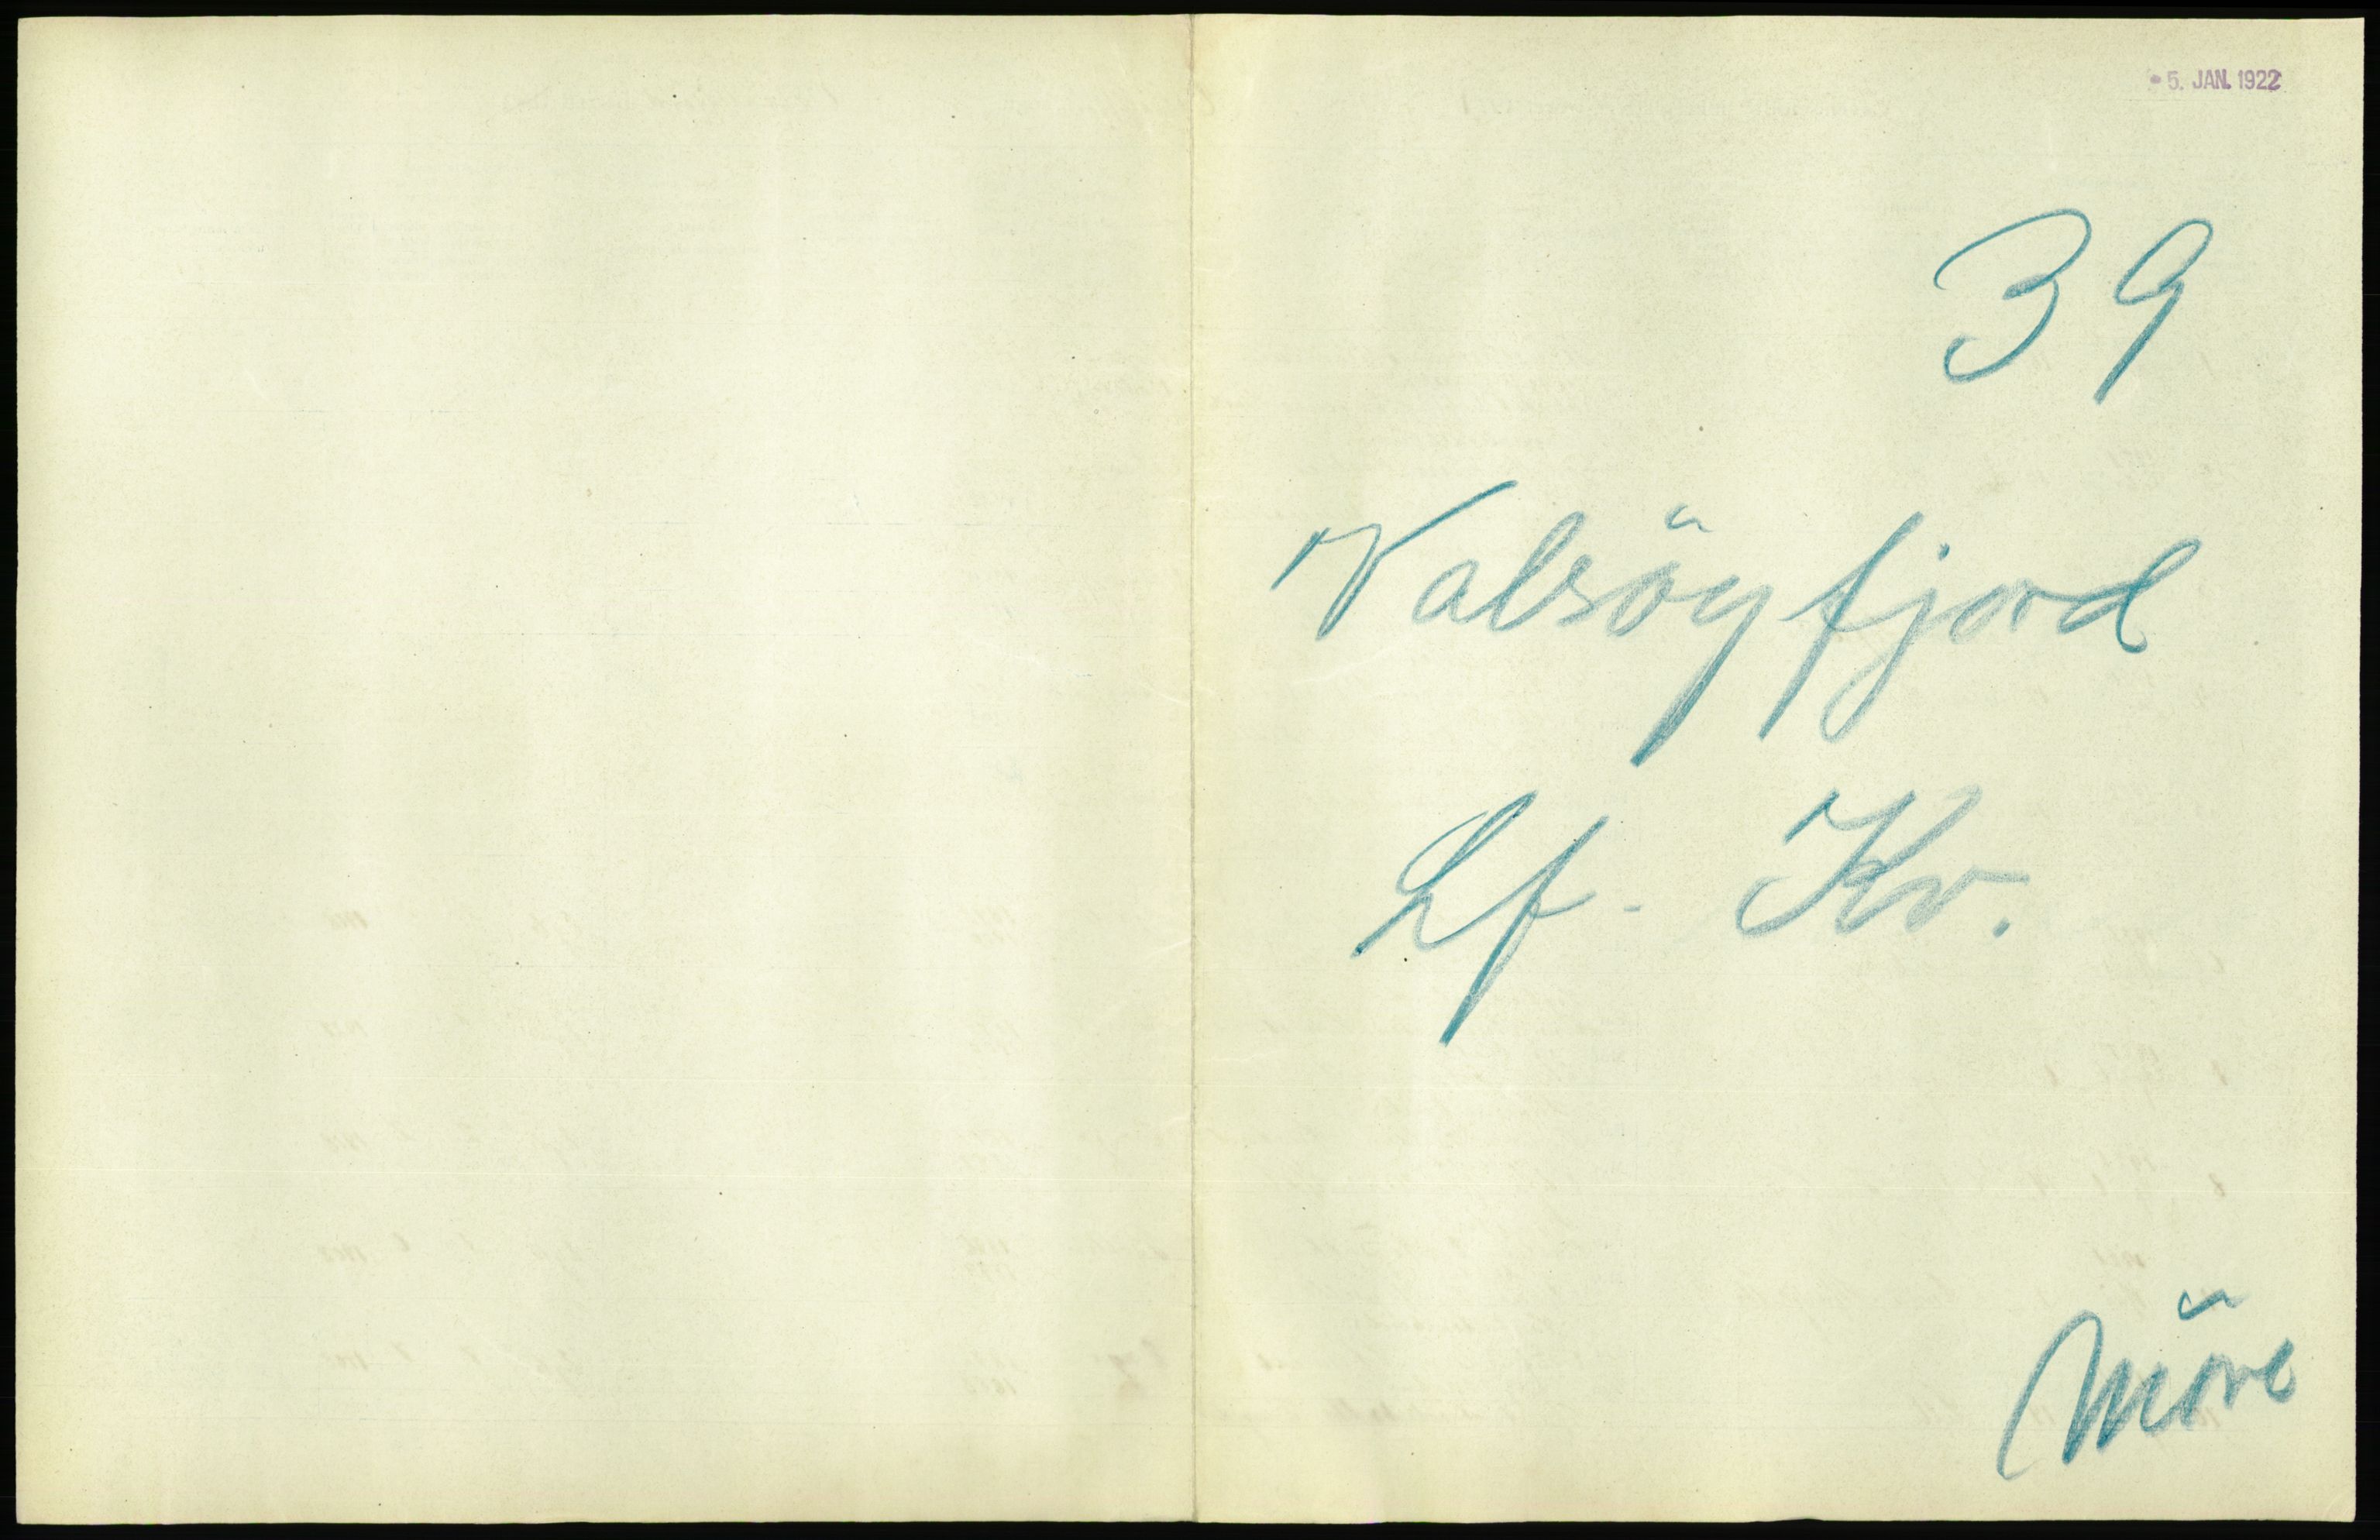 5. JAN. 1922
39
Valsöyfjord
Lf. Kv.
Möre